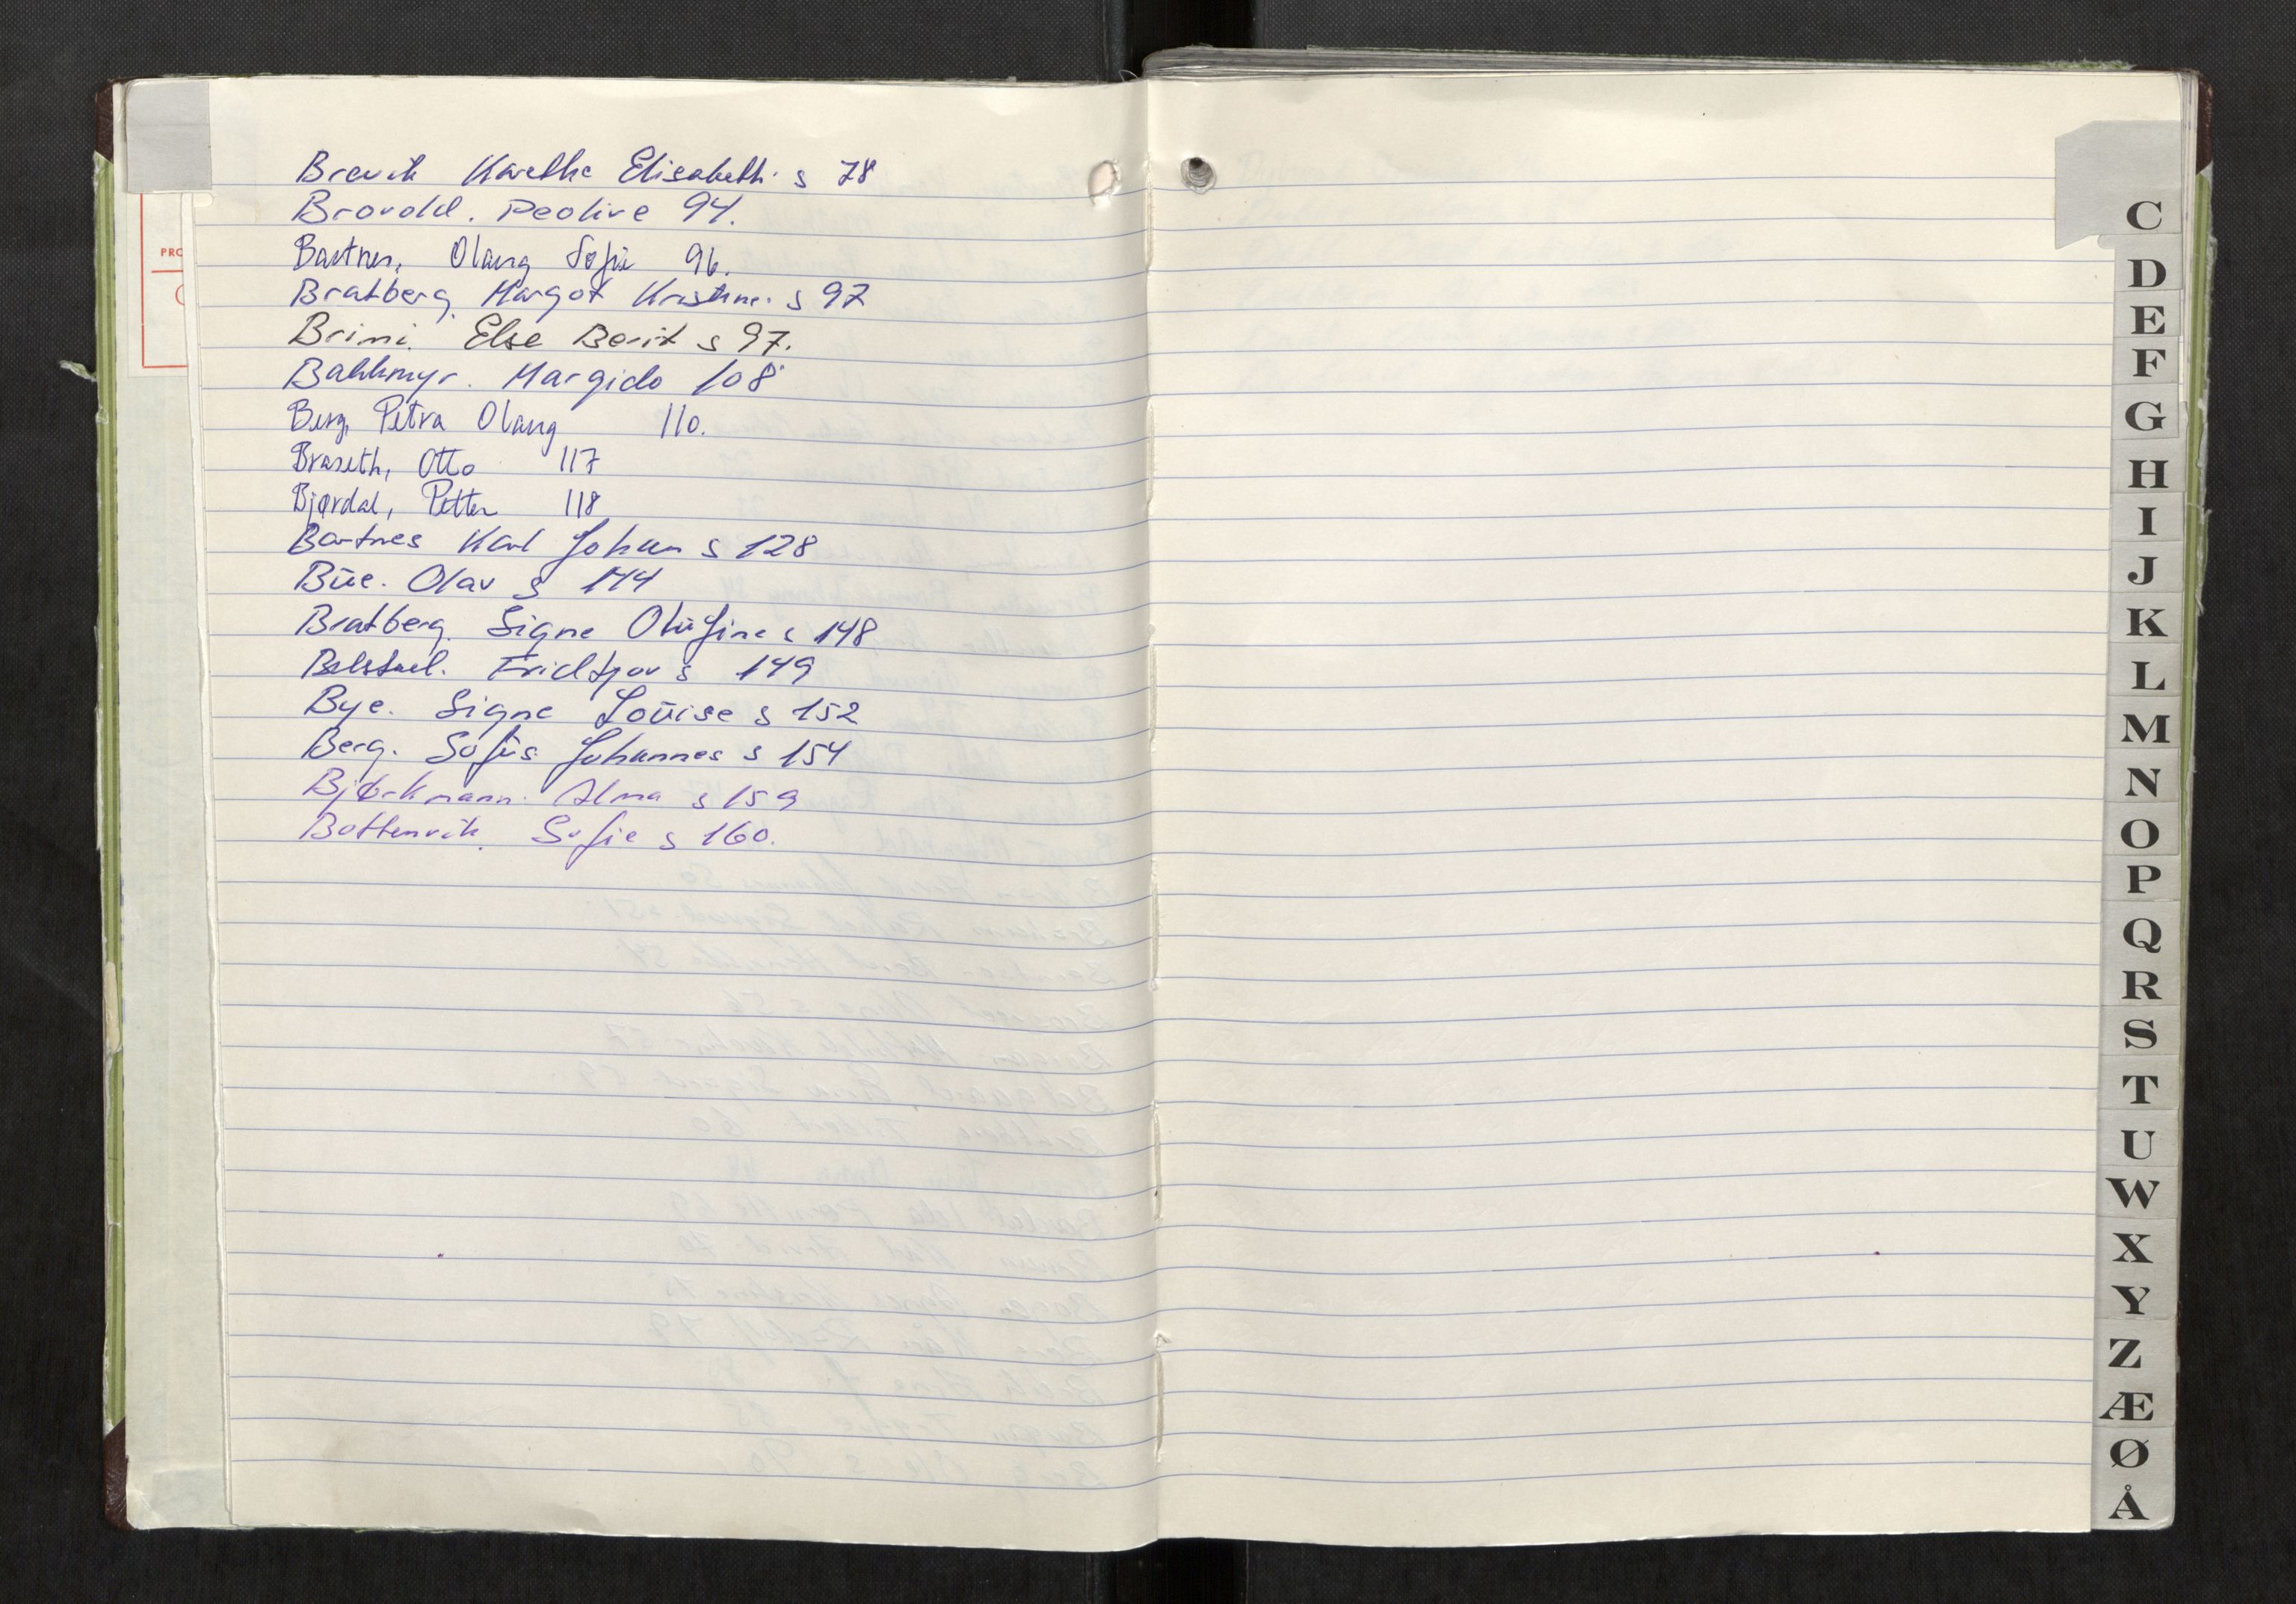 Brevik Karethe Elisabeth. s 78
Brovold. Peolive 94.
Bartnes, Olaug Sofie 96.
Bratberg. Margot Kristine. s 97
Brimi. Else Berit s 97.
Bakkmyr. Margido 108
Berg, Petra Olaug 110.
Braseth, Otto 117
Bjørdal, Petter 118
Bartnes Karl Johan s 128
Būe. Olav s 144
Bratberg. Signe Olūfine s 148
Fridtjov s 149
Bye. Signe Loūise s 152
Berg. Sofūs Johannes s 154
Bjørkmann. Alma s 159
Bottenvik. Sofie s 160.
PRO
C
D
E
F
G
H
I
J
K
L
M
N
O
P
Q
R
S
T
U
W
X
Y
Z
Æ
Ø
Å